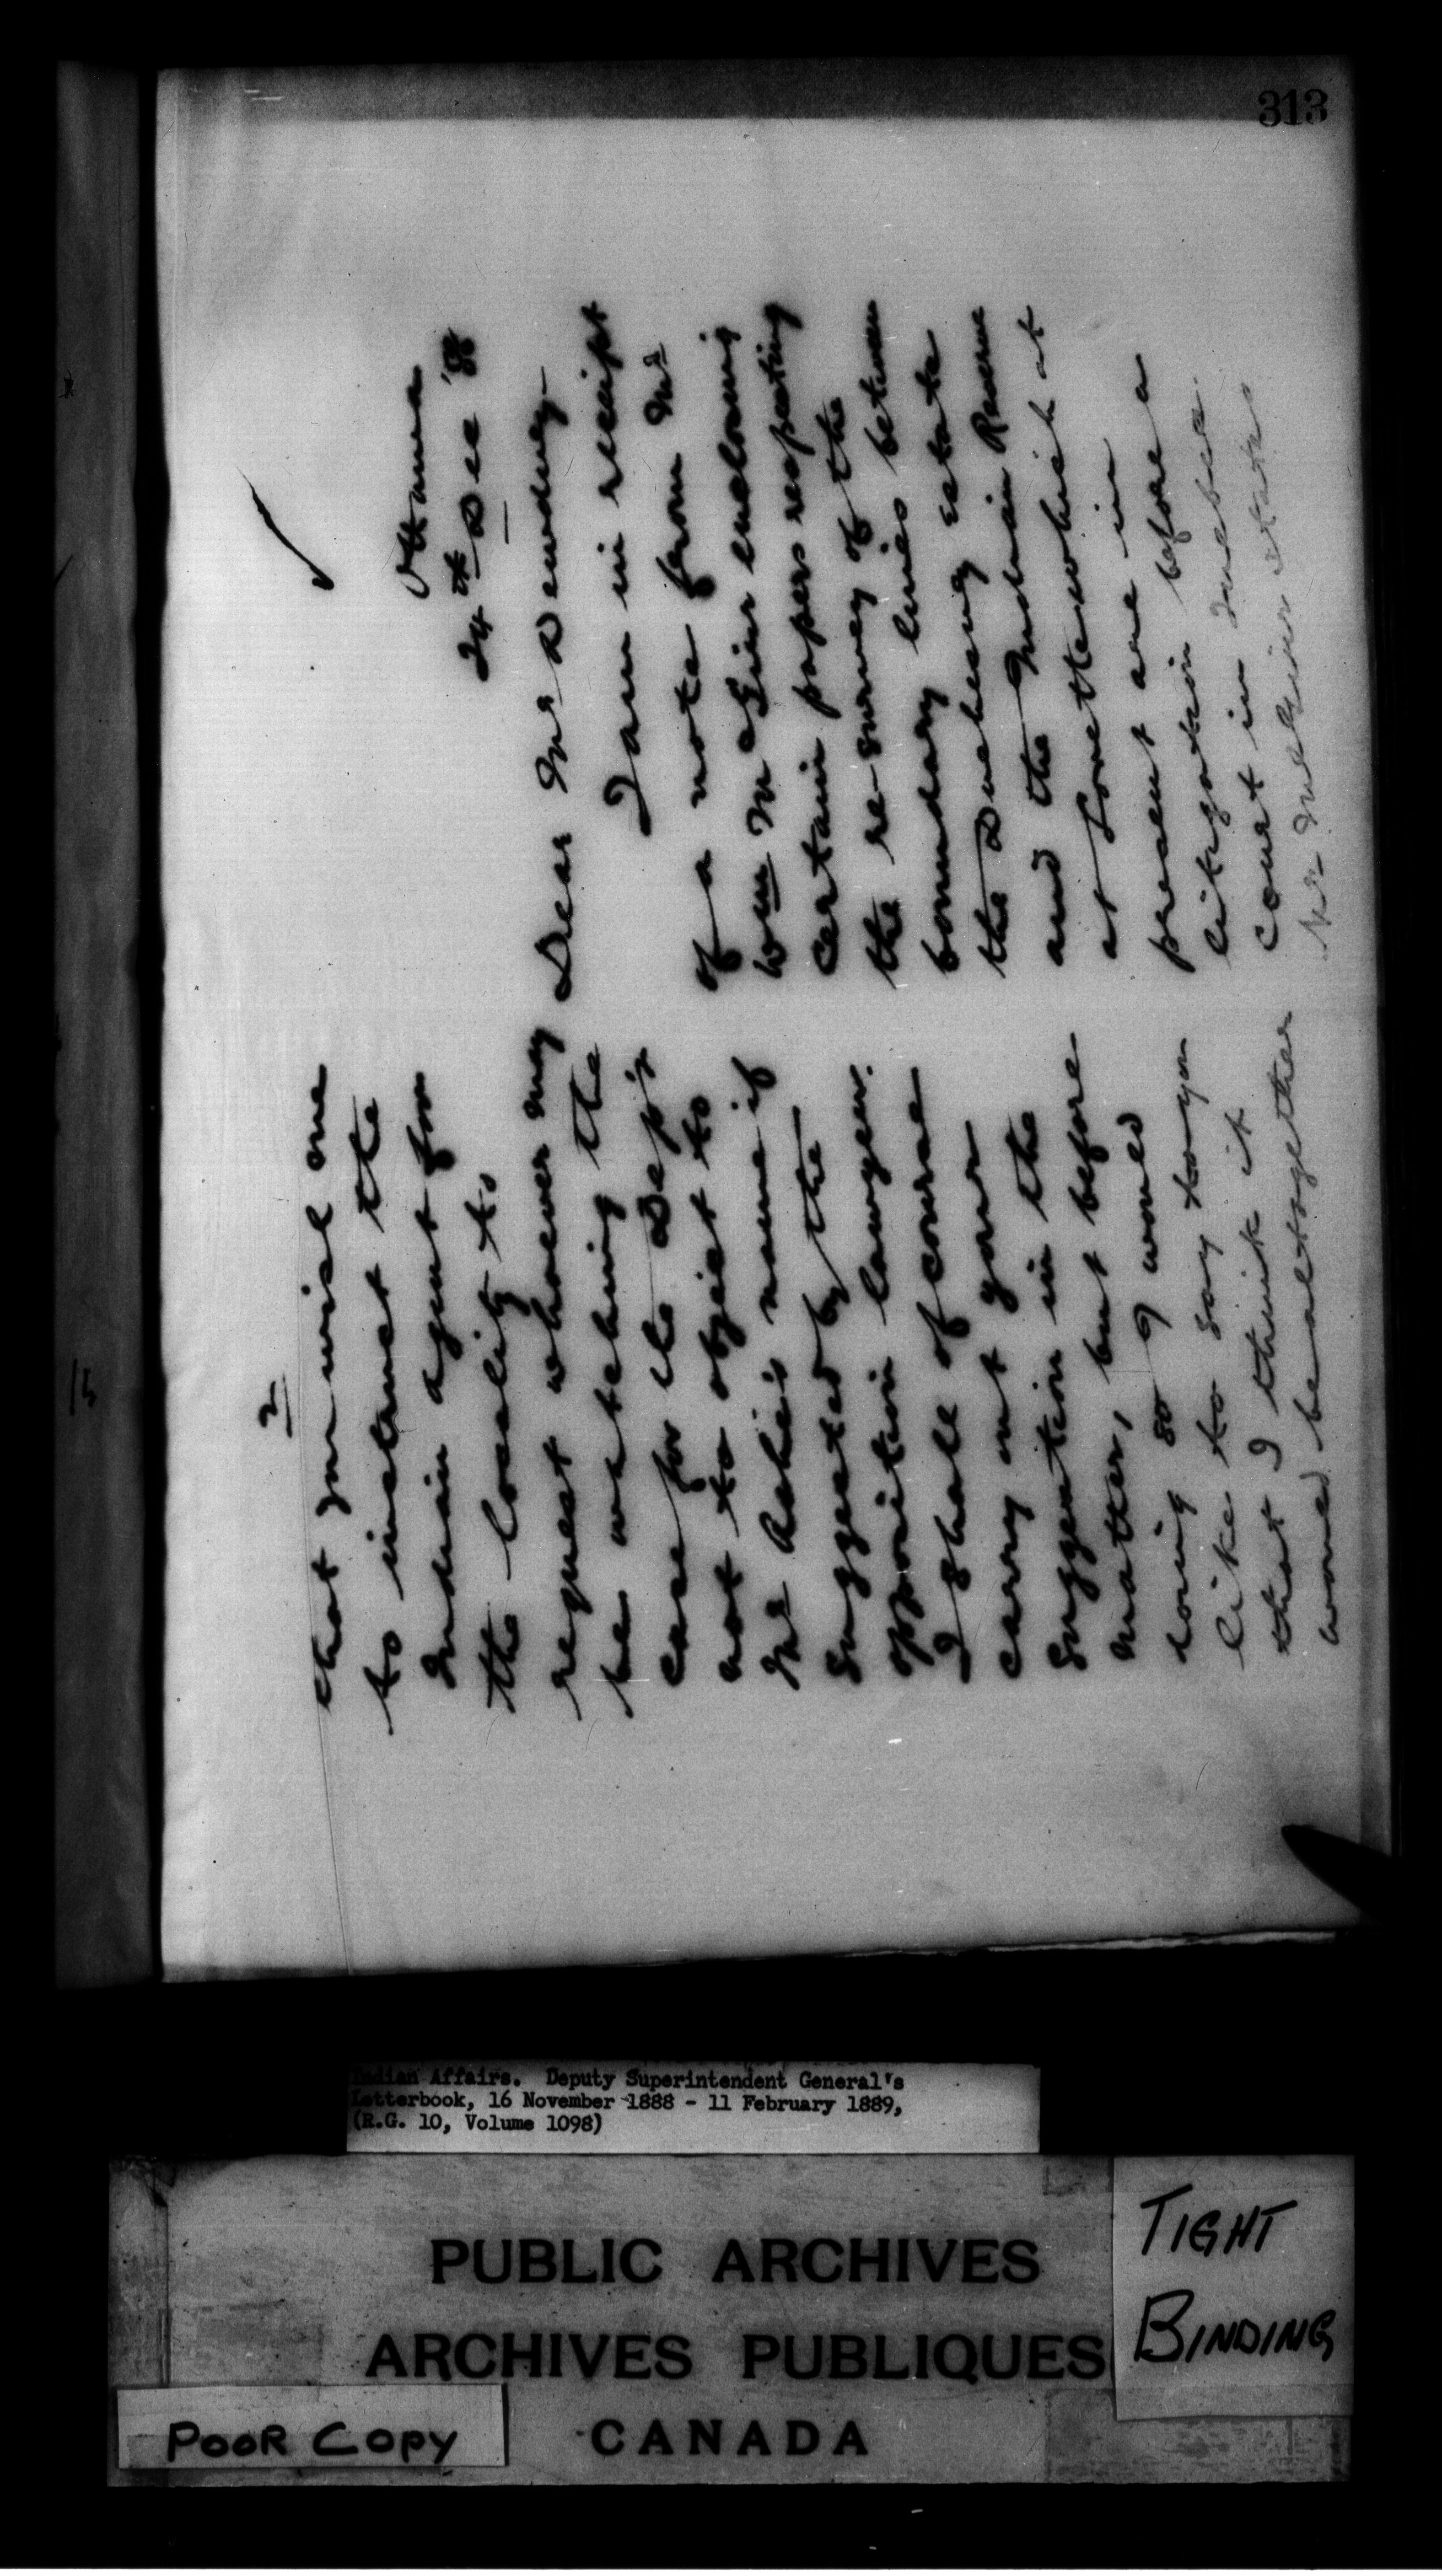 313
Ottawa
24th Dec '88
Dear Mr Dewdney
I am in receipt
of a note from Mr
Wm McGirr enclosing
certain papers respecting
the re-survey of the
boundary lines between
the Duchesnay estate
and the Indian Reserve
at Lorette which at
present are in
litigation before a
Court in Quebec.
Mr McGirr states
2
that you wish me
to instruct the
Indian agent for
the locality to
request whoever may
be watching the
case for the Dep't
not to object to
Mr name if
suggested by the
opposition lawyer.
I shall of course
carry out your
suggestion in the
matter, but before
doing so I would
like to say to you
that I think it
would be altogether
Indian Affairs. Deputy Superintendent General's
Letterbook, 16 November 1888 - 11 February 1889,
(R.G. 10, Volume 1098)
PUBLIC ARCHIVES
ARCHIVES PUBLIQUES
CANADA
TIGHT
BINDING
POOR COPY